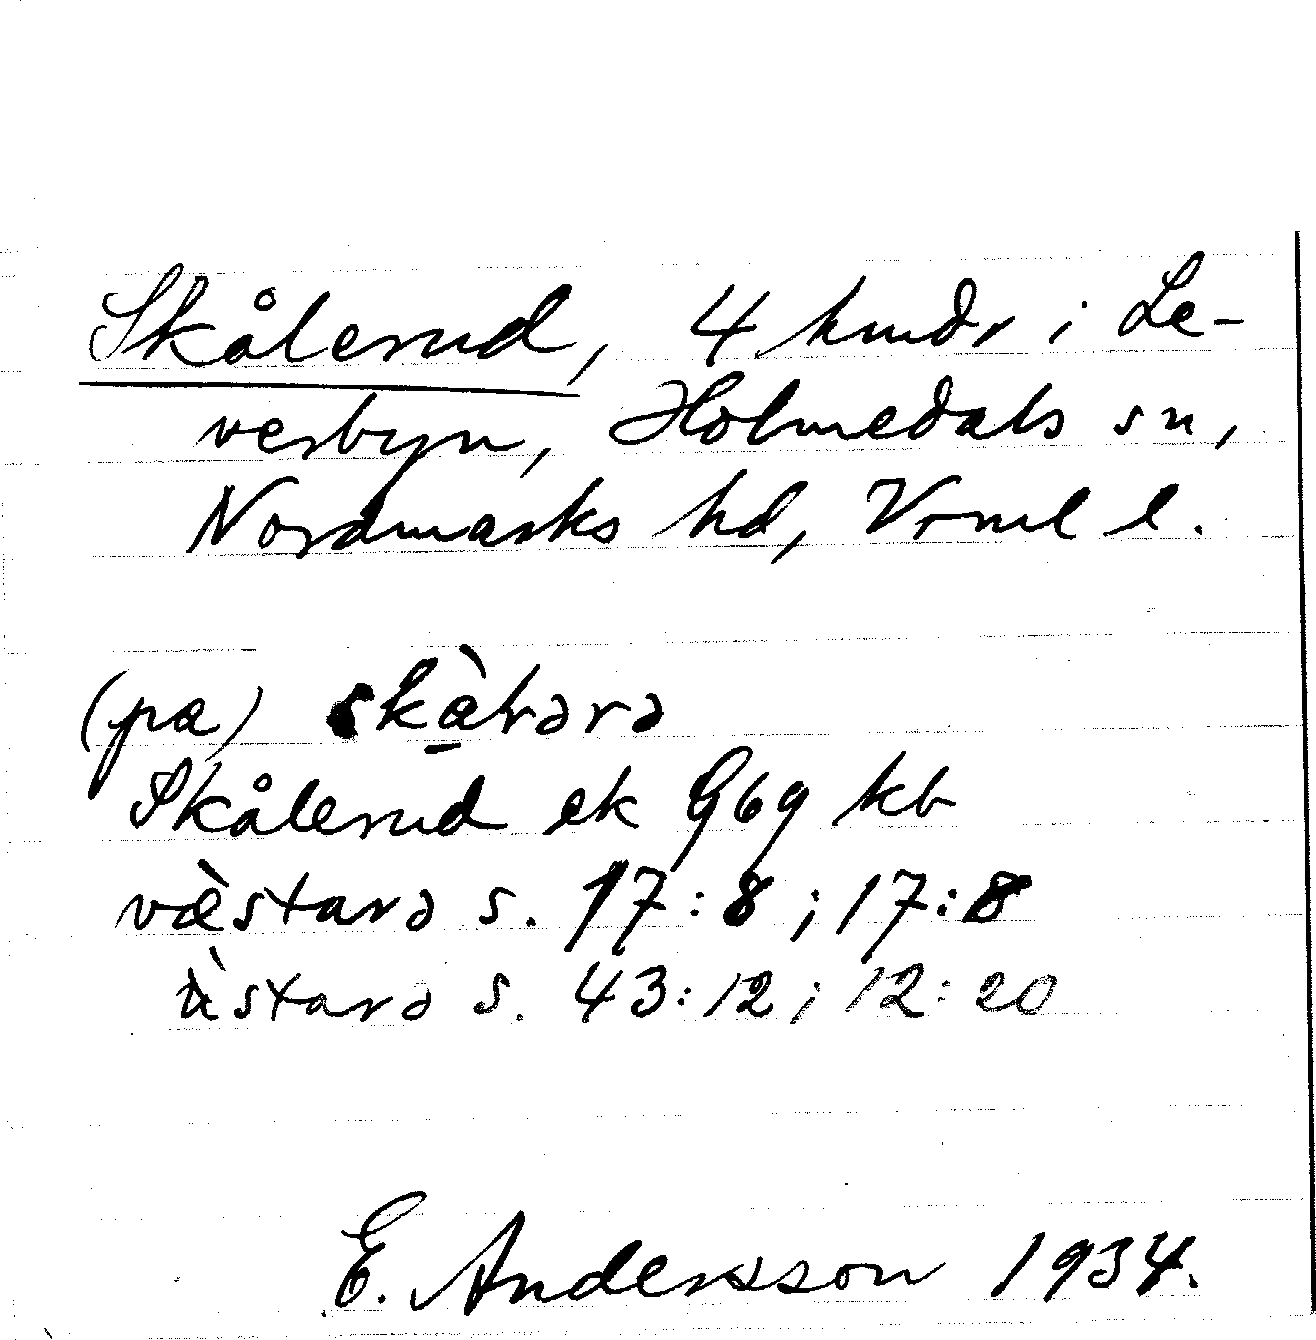 Skålerud, 4 hmdr i Le-
verbyn, Holmedals sn,
Nordmarks hd, Vrml l.
(pa)
Skålerud ek G69 kb
væ̀starə s. 17:8; 17:8
ùstarə s. 43:12; 12:20
E. Andersson 1934.